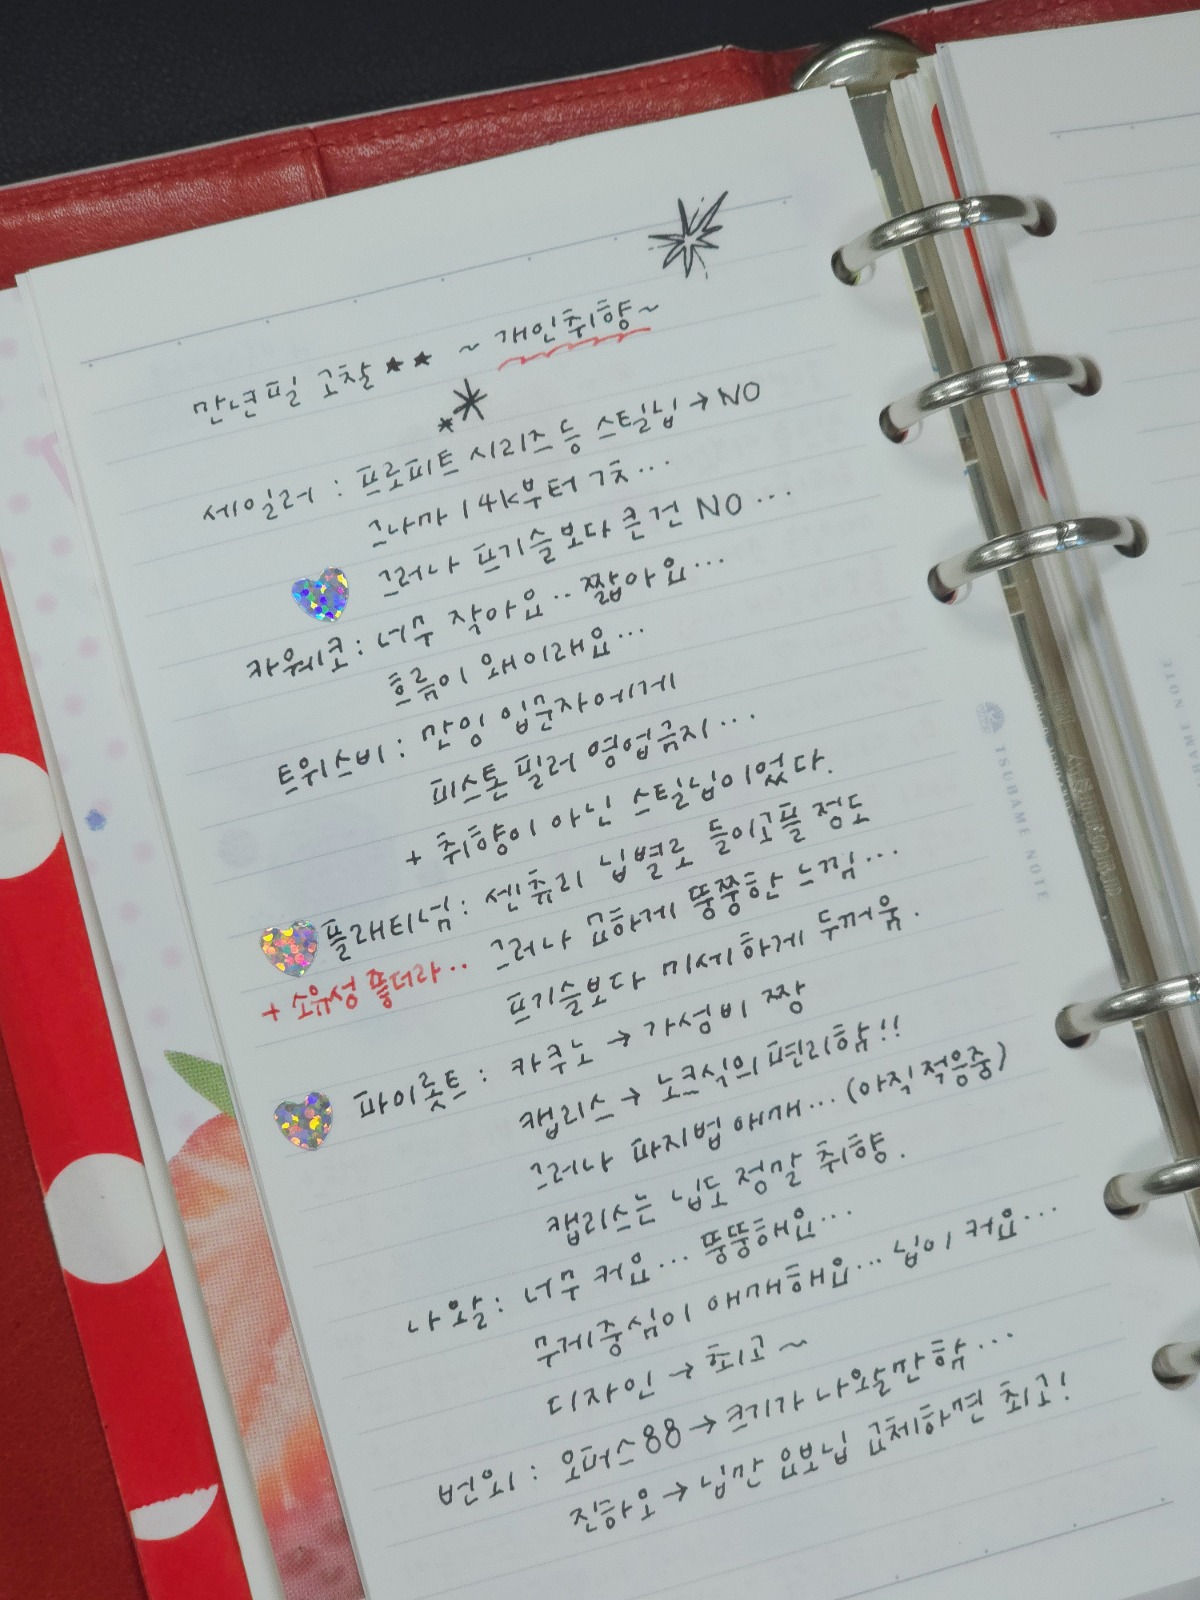 만년필 고찰 ★★ ~ 개인취향~
세일러 : 프로피트 시리즈 등 스틸닙 → NO
그나마 14k부터 굿...
그러나 프기슬보다 큰건 NO ...
카웨코 : 너무 작아요.. 짧아요...
흐름이 왜이래요...
트위스비 : 만잉 입문자에게
피스톤 필러 영업금지...
+ 취향이 아닌 스틸닙이었다.
플래티넘 : 센츄리 닙별로 들이고플 정도
+ 소유성 쫗더라.. 그러나 묘하게 뚱쭝한 느낌...
프기슬보다 미세하게 두꺼움.
파이롯트 : 카쿠노 → 가성비 짱
캡리스 → 노크식의 편리함!!
그러나 파지법 애매... (아직 적응중)
캡리스는 닙도 정말 취향.
나왈 : 너무 커요... 뚱뚱해요...
무게중심이 애매해요... 닙이 커요...
디자인 → 최고 ~
번외 : 오퍼스88 → 크기가 나왈만함...
진하오 → 닙만 요보닙 교체하면 최고!
TSUBAME NOTE